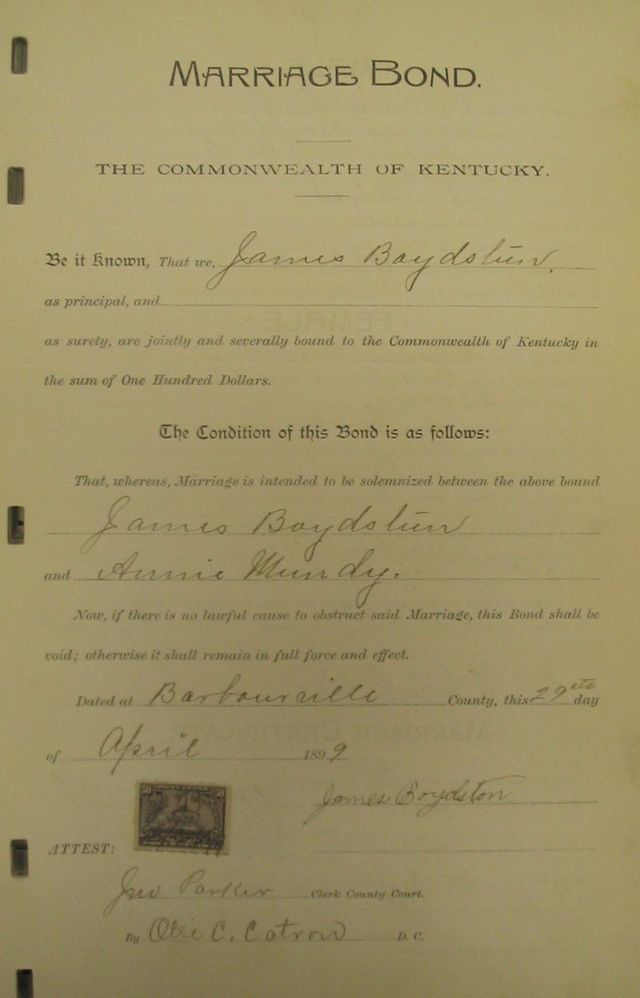 MARRIAGE BOND.
THE COMMONWEALTH OF KENTUCKY.
Be it Known, That we, James Boydstun.
as principal, and
as surety, are jointly and severally bound to the Commonwealth of Kentucky in
the sum of One Hundred Dollars.
The Condition of this Bond is as follows:
That, whereas, Marriage is intended to be solemnized between the above bound
James Boydstun
and Annie Mundy.
Now, if there is no lawful cause to obstruct said Marriage, this Bond shall be
void; otherwise it shall remain in full force and effect.
Dated at Barbourville County, this 29th day
of April 1899
James Boydston
ATTEST:
Jno Parker Clerk County Court.
By C. Catron D. C.